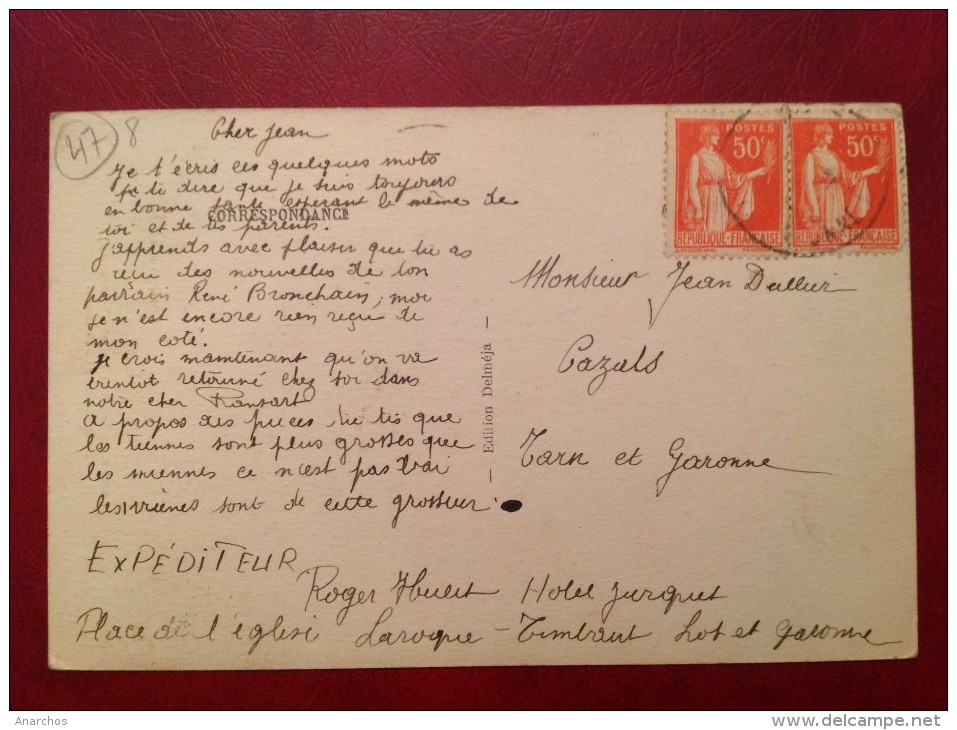 47
8
Cher Jean
Je t'écris ces quelques mots
pr te dire que je suis toujours
en bonne santé esperant le même de
CORRESPONDANCE
toi et de tes parents.
j'apprends avec plaisir que tu as
reçu des nouvelles de ton
parrain René Bronchain, moi
je n'est encore rien reçu de
mon coté.
je crois maintenant qu'on va
bientot retourné chez soi dans
notre cher Ransart
A propos des puces, tu dis que
les tiennes sont plus grosses que
les miennes ce n'est pas vrai
les miènes sont de cette grosseur
POSTES
50c
REPUBLIQUE-FRANÇAISE
POSTES
50c
REPUBLIQUE-FRANÇAISE
Monsieur Jean Dullier
Cazals
Tarn et Garonne
— Edition Delméja —
EXPÉDITEUR
Roger Hotel
Place de l'église Laroque - Timbaut Lot et Garonne
Anarchos
www.delcampe.net